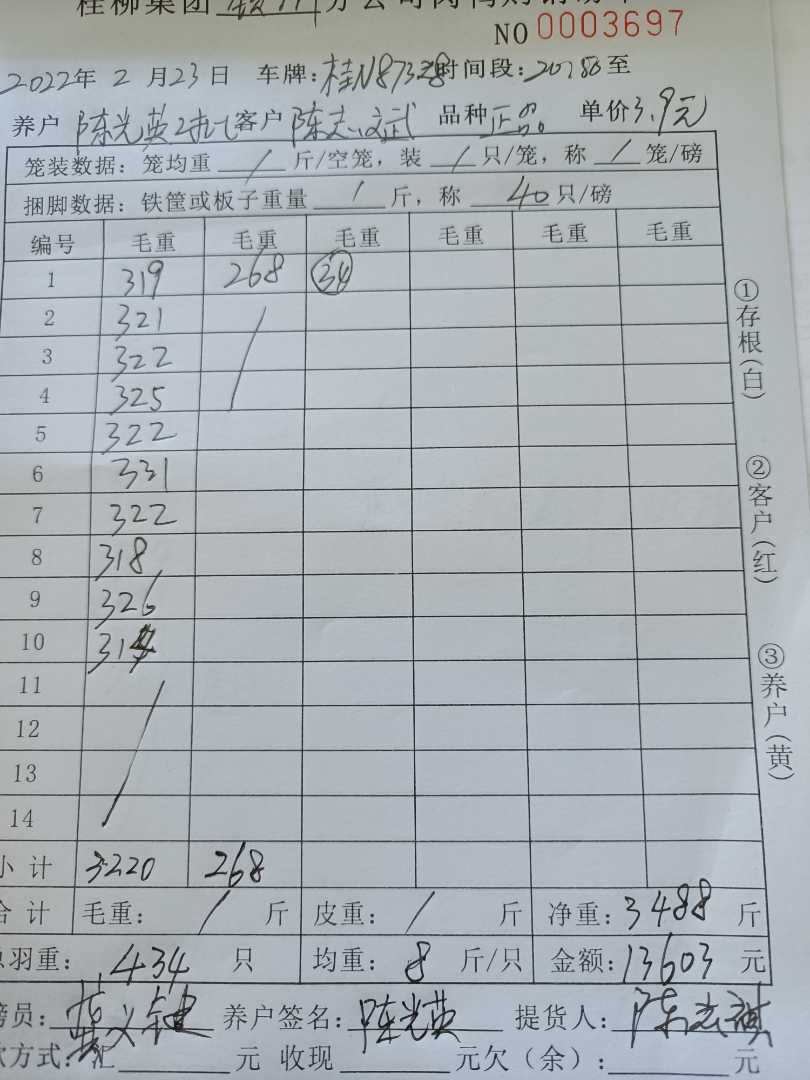 桂柳集团 分公司肉鸭购销
NO 0003697
2022年 2 月 23 日 车牌:桂N87328 时间段: 至
养户 陈光英 客户 陈志武 品种 正品 单价 3.9元
笼装数据: 笼均重 / 斤/空笼, 装 / 只/笼, 称 / 笼/磅
捆脚数据: 铁筐或板子重量 / 斤, 称 40 只/磅
编号 毛重 毛重 毛重 毛重 毛重 毛重
1 319 268 34
2 321 /
3 322
4 325
5 322
6 331
7 322
8 318
9 326
10 314
11 /
12
13
14
小计 3220 268
合计 毛重: / 斤 皮重: / 斤 净重: 3488 斤
总羽重: 434 只 均重: 8 斤/只 金额: 13603 元
磅员: 养户签名: 陈光英 提货人: 陈志祺
款方式: 汇 元 收现 元欠(余): 元
①存根(白)
②客户(红)
③养户(黄)